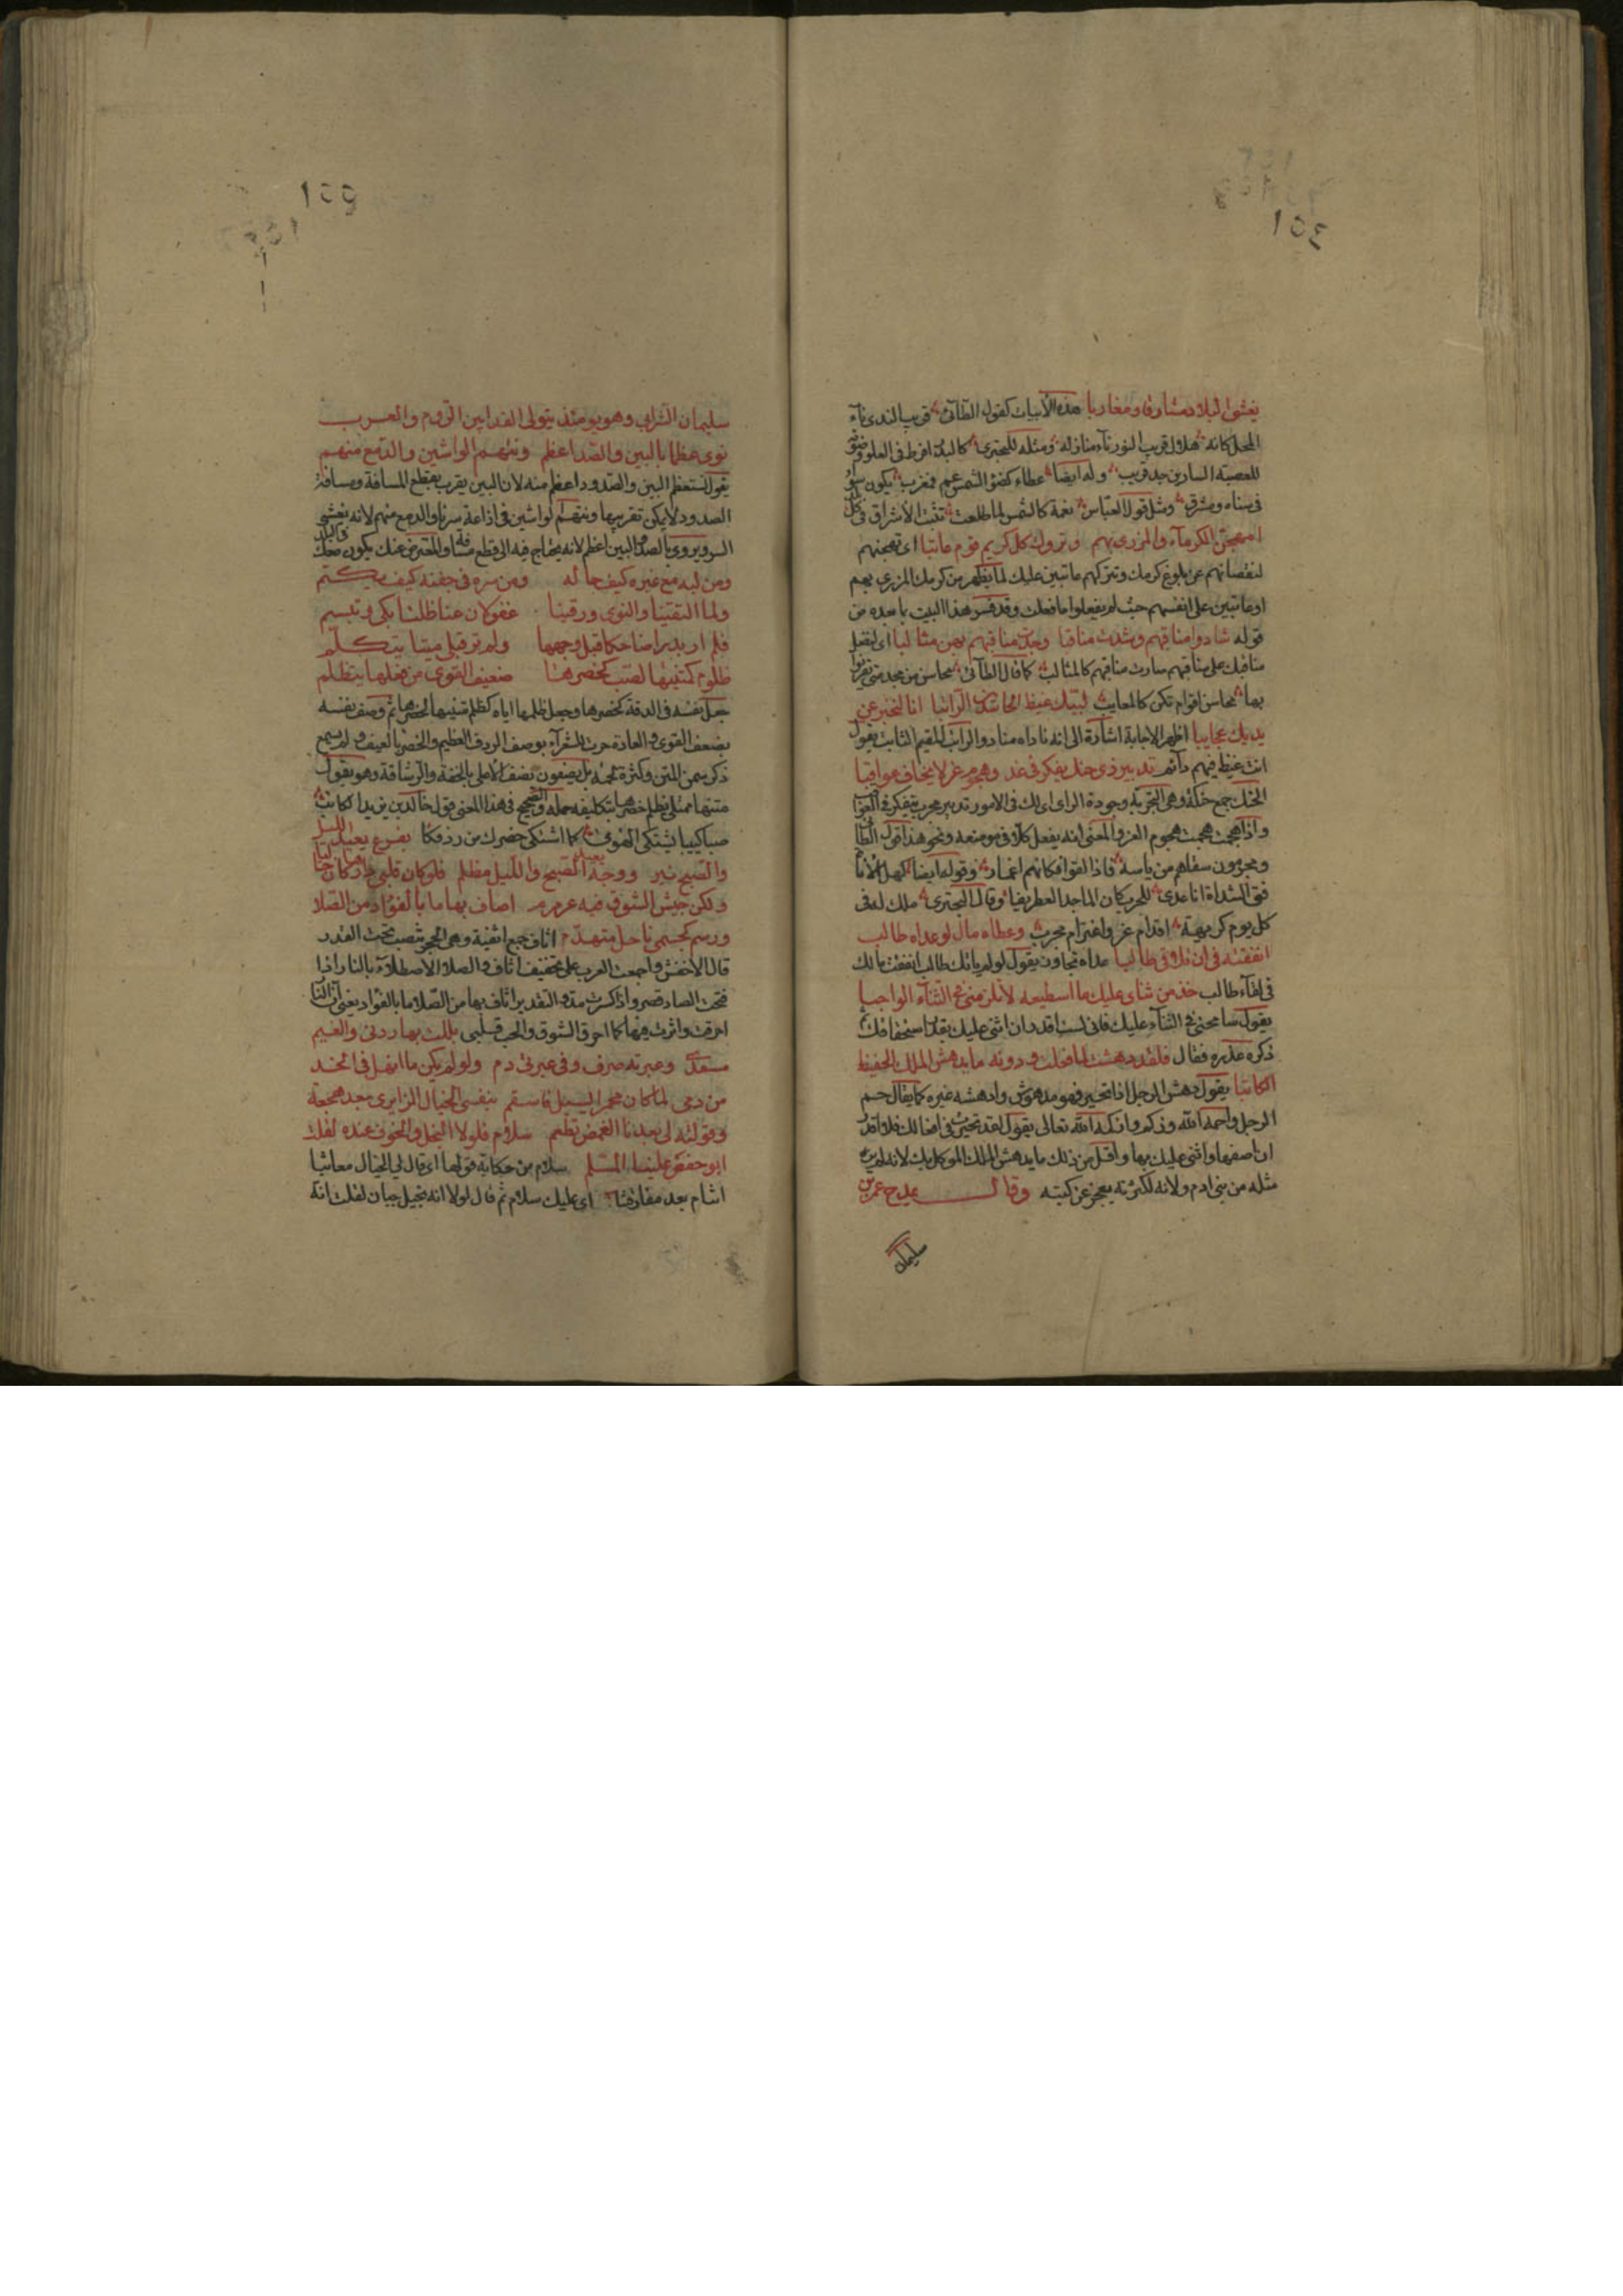 ١٥٤
يغشى البلاد مشارقا ومغاربا هذه الأبيات كقول الطآئى قريب الندى نآء
المحل كانه هلال قريب النور نآء منازله ومثله للبحترى كالبدر افرط فى العلو وضوء
للعصبة السارين جد قريب وله ايضا عطاء كضوء الشمس عم فمغرب يكون سوآ
فى سناه ومشرق ومثل قول العباس نعمة كالشمس لما طلعت ثبت الاشراق فى كل
امهجن الكرمآء والمزرى بهم وتروك كل كريم قوم عاتبا اى تهجنهم
لنقصانهم عن بلوغ كرمك وتتركهم عاتبين عليك لما يظهر من كرمك المزرى بهم
او عاتبين على انفسهم حيث لم يفعلوا ما فعلت وقد فسر هذا البيت بما بعده من
قوله شادوا مناقبهم وشدت مناقبا وجدت مناقبهم بهن مثالبا اى لفضل
مناقبك على مناقبهم صارت مناقبهم كالمثالب كما قال الطآئى محاسن من مجد متى يقرنوا
بها محاسن اقوام تكن كالمعايب لبيك غيظ الحاسدين الراتبا انا لنخبر من
يديك عجايبا اظهر الاجابة اشارة الى انه ناداه منادو الراتب المقيم الثابت يقول
انت غيظ فيهم دآئم تدبير ذى حنك يفكر فى غد وهجوم غر لا يخاف عواقبا
الحنك جمع حنكة وهى التجربة وجودة الراى اى لك فى الامور تدبير مجرب يتفكر فى العواقب
واذا هجمت هجمت هجوم الغر والمعنى انه يفعل كلا فى موضعه ونحو هذا قول الطائى
ومجربون سقاهم من باسه فاذا لقوا فكانهم اغمار وقوله ايضا كهل الاناة
فتى الشذاة اذا غدى للحرب كان الماجد الغطريفا وقال البحترى ملك له فى
كل يوم كريهة اقدام غر واعتزام مجرب وعطاء مال لو عداه طالب
انفقته فى ان تلاقى طالبا عداه تجاوزه يقول لو لم ياتك طالب انفقت مالك
فى لقآء طالب خذ من ثناى عليك ما اسطيعه لا تلزمنى فى الثنآء الواجبا
يقول سامحنى فى الثنآء عليك فانى لست اقدر ان اثنى عليك بقدر استحقاقك ثم
ذكر عذره فقال فلقد دهشت لما فعلت ودونه ما يدهش الملك الحفيظ
الكاتبا يقول دهش الرجل اذا تحير فهو مدهوش وادهشه غيره كما يقال حم
الرجل واحمه الله وزكم وازكمه الله تعالى يقول لقد تحيرت فى افعالك فلا اقدر
ان اصفها واثنى عليك بها واقل من ذلك ما يدهش الملك الموكل بك لانه لم ير
مثله من بنى ادم ولانه لكثرته يعجز عن كتبه وقال يمدح عمر بن
سليمان
١٥٥
سليمان الشرابى وهو يومئذ يتولى الفدا بين الروم والعرب
نرى عظما بالبين والصد اعظم ونتهم الواشين والدمع منهم
يقول نستعظم البين والصدود اعظم منه لان البين يقرب بقطع المسافة ومسافة
الصدود لا يمكن تقريبها ونتهم الواشين فى اذاعة سرنا والدمع منهم لانه يفشى
السر ويروى بالصد والبين اعظم لانه يحتاج فيه الى قطع مسافة والمعترض عنك يكون معك فى البلد
ومن لبه مع غيره كيف حاله ومن سره فى جفنه كيف يكتم
ولما التقينا والنوى ورقيبنا غفولان عنا ظلت ابكى وتبسم
فلم ار بدرا ضاحكا قبل وجهها ولم تر قبلى ميتا يتكلم
ظلوم كمتنيها لصب كخصرها ضعيف القوى من فعلها يتظلم
جعل نفسه فى الدقة كخصرها وجعل ظلمها اياه كظلم متنيها لخصرها ثم وصف نفسه
بضعف القوى والعادة جرت للشعرآء بوصف الردف بالعظيم والخصر بالهيف ولم يسمع
ذكر سمن المتن وكثرة لحمه بل يصفون نصف الاعلى بالخفة والرشاقة وهو يقول
متنها ممتلئ يظلم خصرها بتكليفه حمله والصحيح فى هذا المعنى قول خالد بن يزيد الكاتب
صبا كئيبا يشتكى الهوى كما اشتكى خصرك من ردفكا بفرع يعيد الليل
والصبح نير ووجه يعيد الصبح والليل مظلم فلو كان قلبى دارها كان خاليا
ولكن جيش الشوق فيه عرمرم اصاف بها ما بالفؤاد من الصلا
ورسم كجسمى ناحل متهدم اثاف جمع اثفية وهى الحجر تنصب تحت القدر
قال الاخفش واجمعت العرب على تخفيف اثاف والصلا الاصطلاء بالنار اذا
فتحت الصاد قصر واذا كسرت مد والتقدير اثاف بها من الصلا ما بالفؤاد يعنى ان النار
احرقت واثرت فيها كما احرق الشوق والحب قلبى بللت بها ردنى والغيم
مسعد وعبرته صرف وفى عبرتى دم ولو لم يكن ما انهل فى الخد
من دمى لما كان محمرا يسيل فاسقم بنفسى الخيال الزايرى بعد هجعة
وقولته لى بعدنا الغمض تطعم سلام فلولا البخل والخوف عنده لقلت
ابو حفص علينا المسلم سلام من حكاية قولها اى قال لى الخيال معاتبا
اتنام بعد مفارقتنا اى عليك سلام ثم قال لولا انه بخيل جبان لقلت انه